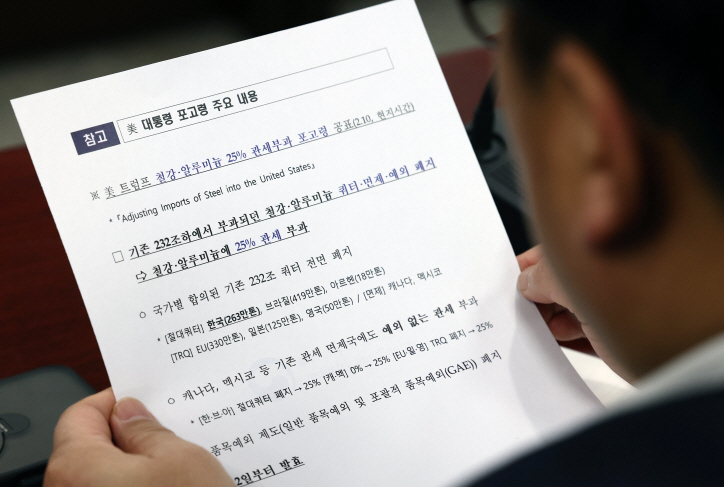 참고 美 대통령 포고령 주요 내용
※ 美 트럼프 철강·알루미늄 25% 관세부과 포고령 공표(2.10, 현지시간)
* 「Adjusting Imports of Steel into the United States」
□ 기존 232조하에서 부과되던 철강·알루미늄 쿼터·면제·예외 폐지
⇨ 철강·알루미늄에 25% 관세 부과
ㅇ 국가별 합의된 기존 232조 쿼터 전면 폐지
* [절대쿼터] 한국(263만톤), 브라질(419만톤), 아르헨(18만톤)
[TRQ] EU(330만톤), 일본(125만톤), 영국(50만톤) / [면제] 캐나다, 멕시코
ㅇ 캐나다, 멕시코 등 기존 관세 면제국에도 예외 없는 관세 부과
* [한·브·아] 절대쿼터 폐지→25% [캐·멕] 0%→25% [EU·일·영] TRQ 폐지→25%
품목예외 제도(일반 품목예외 및 포괄적 품목예외(GAE)) 폐지
2일부터 발효